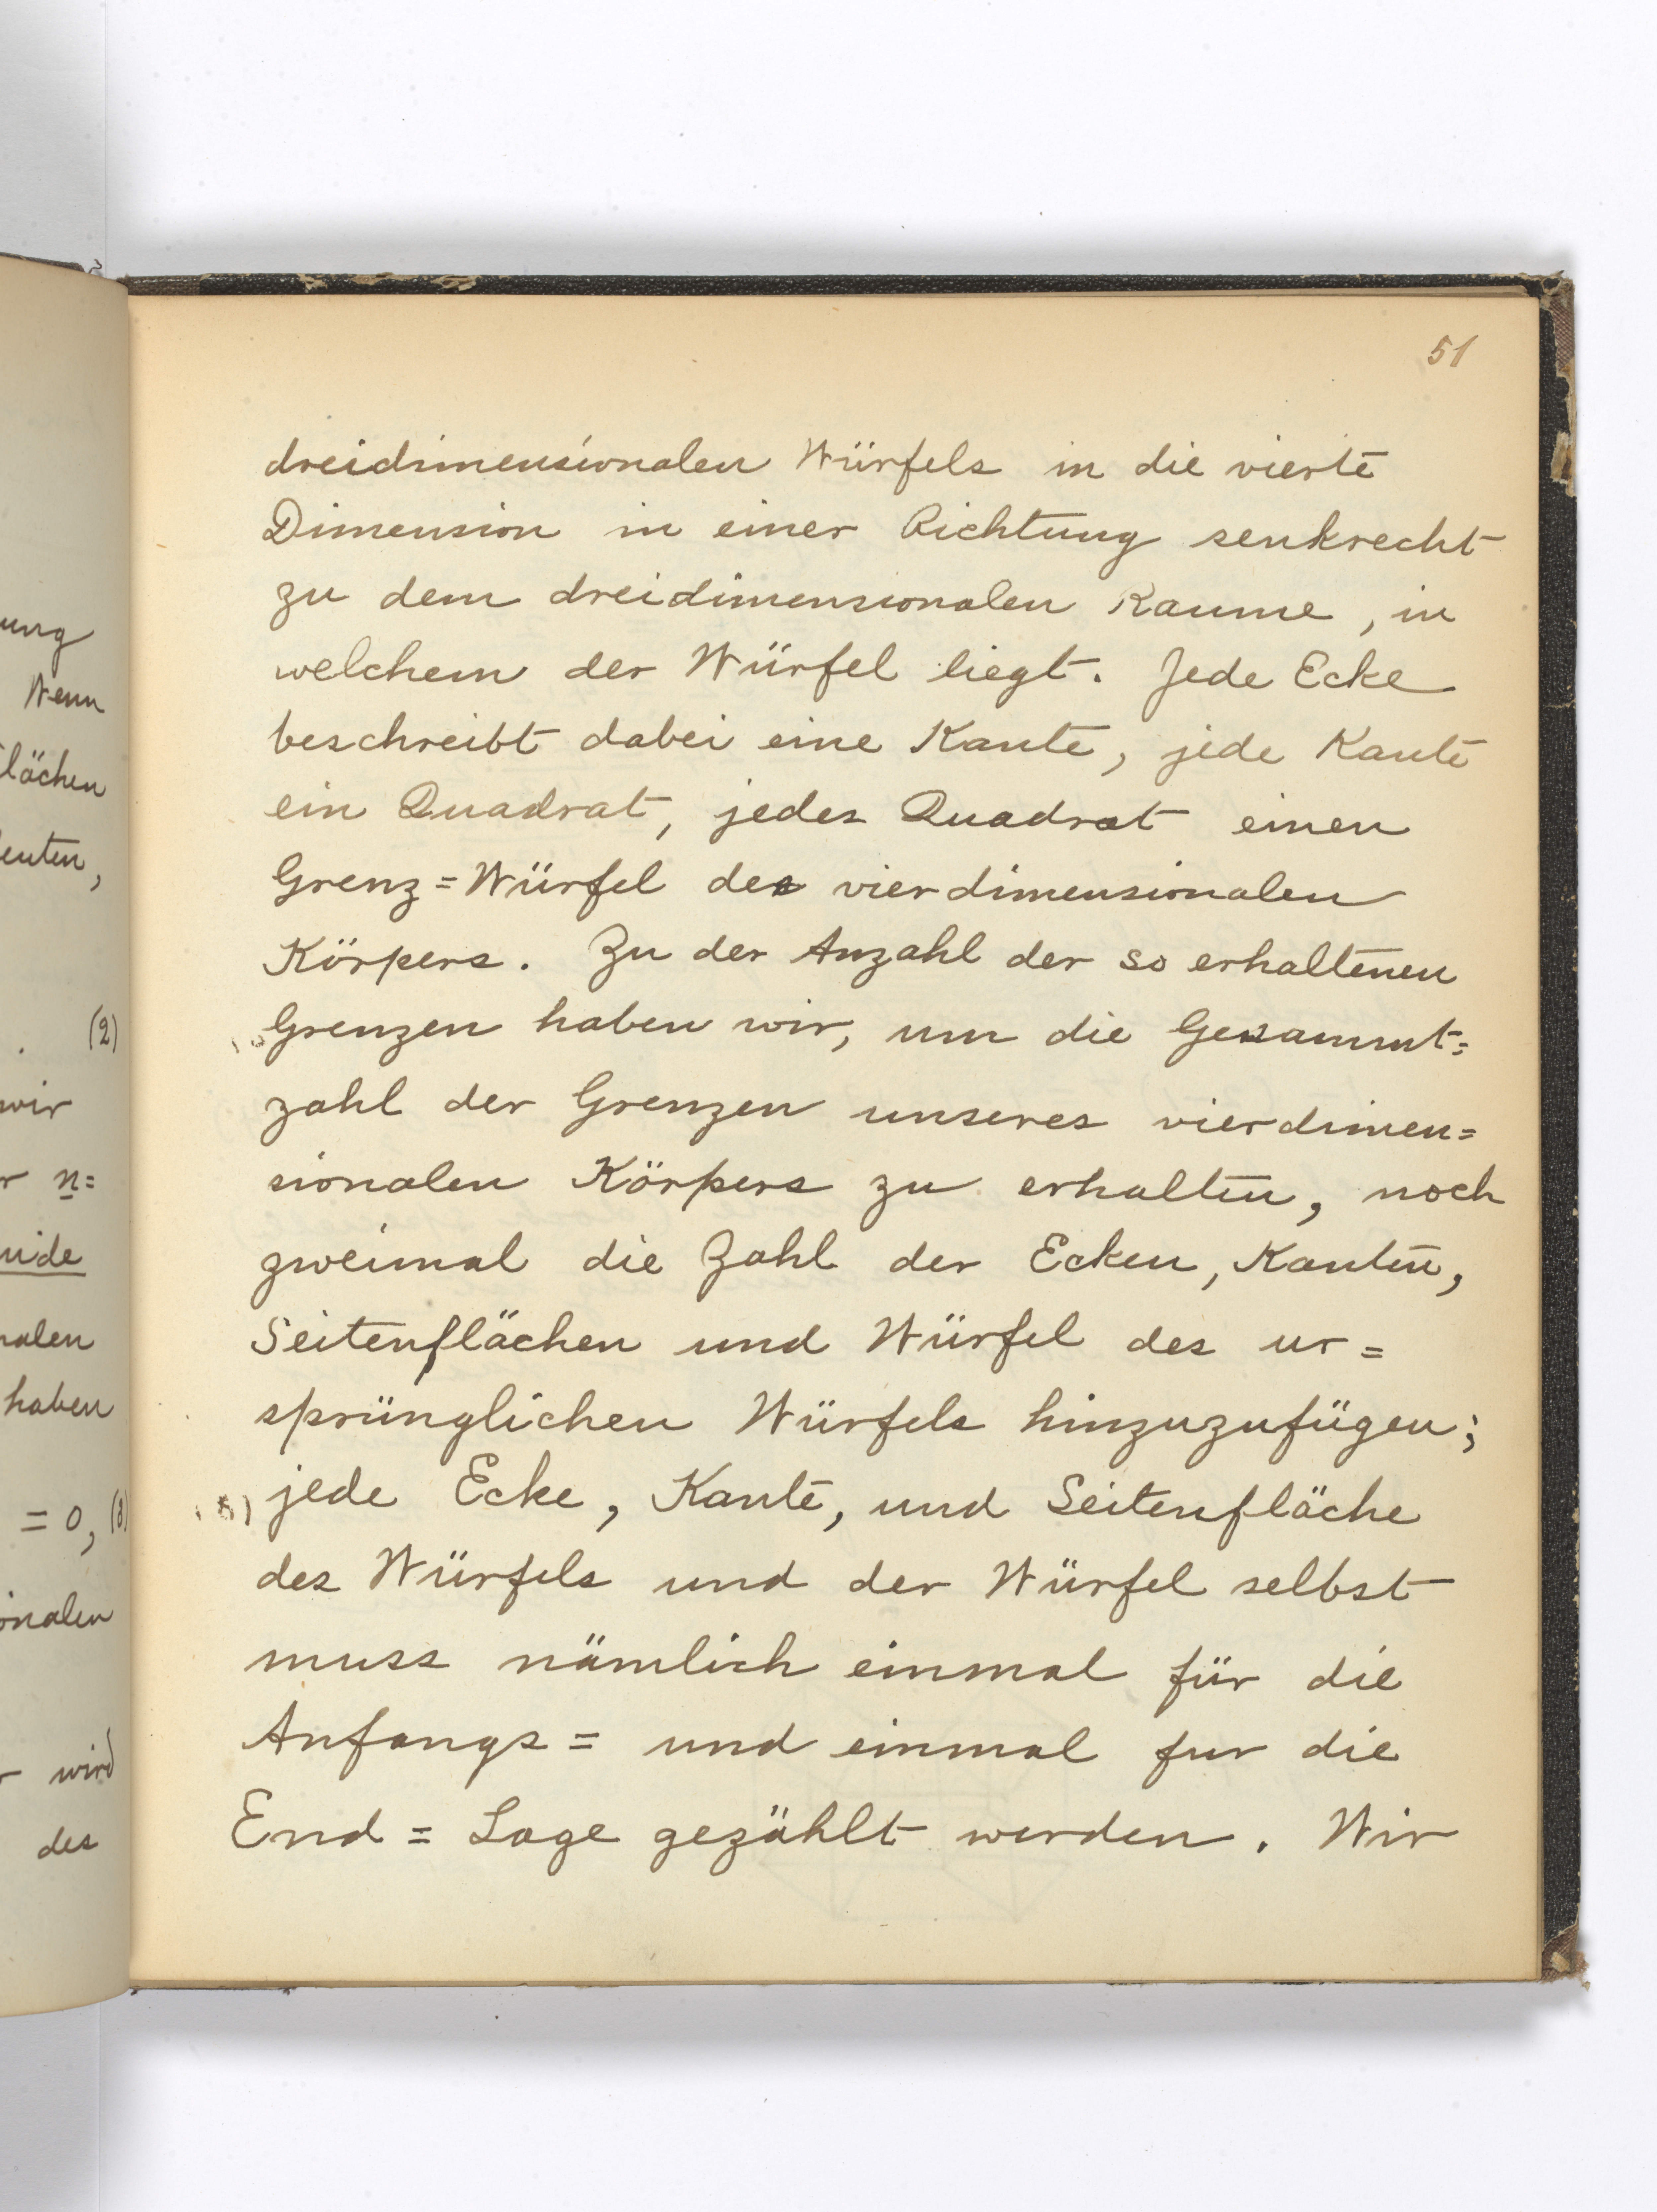 51
dreidimensionalen Würfels in die vierte
Dimension in einer Richtung senkrecht
zu dem dreidimensionalen Raume, in
welchem der Würfel liegt. Jede Ecke
beschreibt dabei eine Kante, jede Kante
ein Quadrat, jedes Quadrat einen
Grenz=Würfel des vierdimensionalen
Körpers. Zu der Anzahl der so erhaltenen
Grenzen haben wir, um die Gesammt=
zahl der Grenzen unseres vierdimen=
sionalen Körpers zu erhalten, noch
zweimal die Zahl der Ecken, Kanten,
Seitenflächen und Würfel des ur=
sprünglichen Würfels hinzuzufügen;
jede Ecke, Kante, und Seitenfläche
des Würfels und der Würfel selbst
muss nämlich einmal für die
Anfangs= und einmal fur die
End=Lage gezählt werden. Wir
ung
Wenn
lächen
euten,
(2)
wir
r n=
uide
nalen
haben
= 0, (3)
onalen
r wird
des